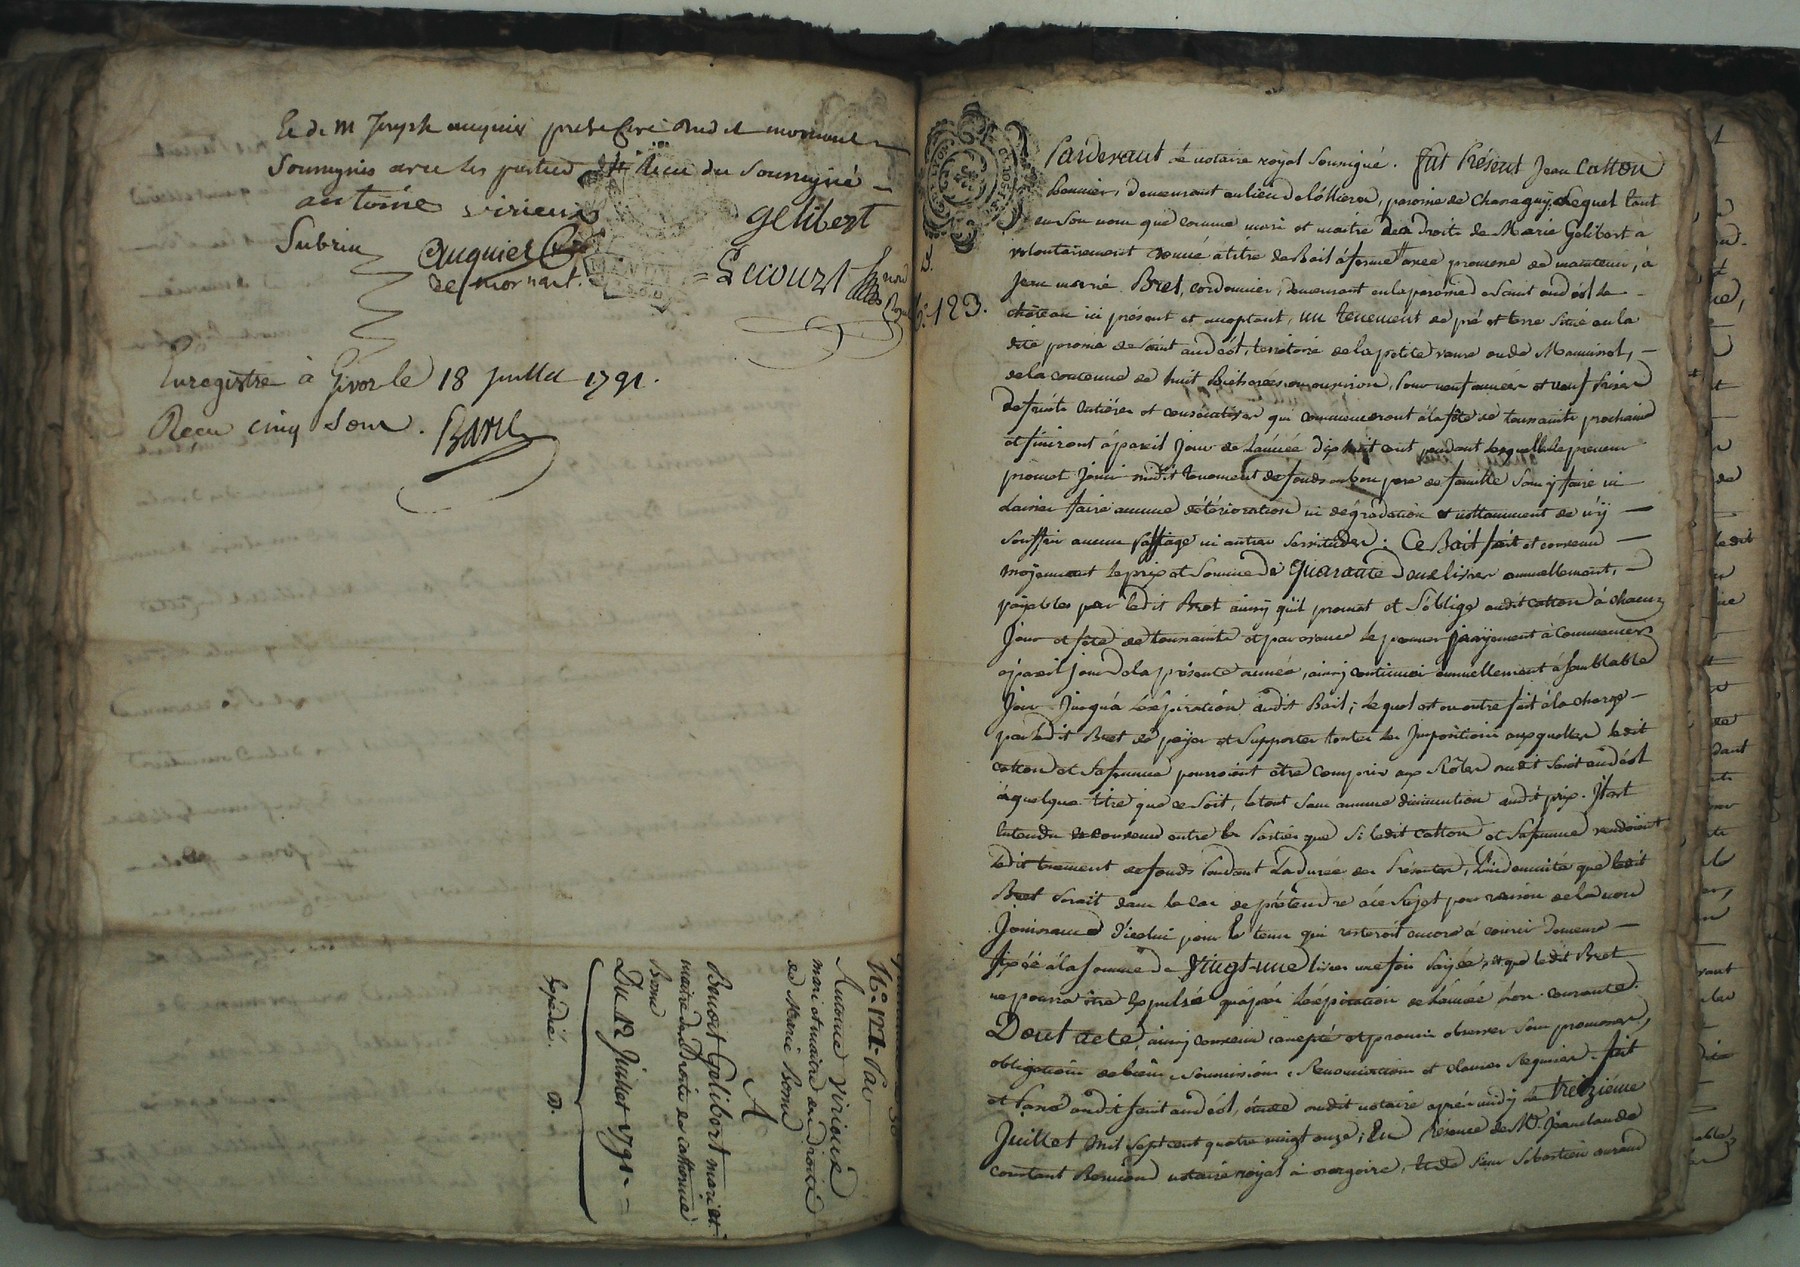 Et de m Joseph auquier pretre Curé dud it mornant
Soussignés avec les parties de ce requis Soussigné
antoine virieux
gelibert
Subrin
auquier Curé
de mornant.
Lecourt
Enregistré à Givor le 18 Juillet 1791.
Reçu cinq Sous. Baril
N°. 122. Par
Antoine Virieux
mari et maitre des Droits
de Marie Bonne
A
Benoit Gelibert mari et
maitre des Droits de Cathérine
Bonne
Du 12 Juillet 1791
Expédié. D.
Pardevant le notaire royal Soussigné. fut Présent Jean Catton
demeurant au lieu de paroisse de Chassagny, Lequel tant
en Son nom que comme mari et maitre des Droits de Marie Gelibert a
volontairement donné à titre de Bail à ferme avec promesse de maintenir, à
Jean marié Bret, cordonnier, demeurant en la paroisse de Saint andéol le
123.
château ici présent et acceptant, un tenement de pré et terre Situé en la
dite paroisse de Saint andéol, territoire de la petite ou de
de la contenue de huit Bicherées ou environ, pour neuf années et neuf prises
de Suite entières et consécutives qui commenceront à la fête de toussaints prochaine
et finiront à pareil jour de l'année dix huit cent pendant lesquelles le preneur
promet jouir dudit tenement de fonds en bon pere de famille Sans y faire ni
Laisser faire aucune détérioration ni dégradation et nottamment de n'y
Souffrir aucun passage ni autres Servitudes; Ce Bail fait et convenu
moyennant le prix et Somme de Quarante Deux livres annuellement,
payables par ledit Bret ainsy qu'il promet et S'oblige audit Catton à chacun
Jour et fête de toussaints et par avance le premier payement à Commencer
à pareil jour de la présente année, ainsy continuer annuellement à Semblable
Jour Jusqu'à l'éxpiration dudit Bail; lequel est en outre fait à la charge
par ledit Bret de payer et Supporter toutes les Impositions auxquelles ledit
Catton et Sa femme pourroient être compris aux Rôles dudit Saint andéol
à quelque titre que ce Soit, le tout Sans aucune diminution audit prix. Il est
Entendu et convenu entre les Parties que Si ledit Catton et Sa femme vendoient
ledit tenement de fonds Pendant La durée des Présentes, L'indemnité que ledit
Bret Serait dans le Cas de prétendre à ce Sujet pour raison de la non
Jouissance d'icelui pour le tems qui resteroit encore à courir Demeure
fixée à la Somme de Vingt-une livres une fois payée, et que ledit Bret
ne pourra être Expulsé qu'après l'éxpiration de l'année lors courante.
Dont acte, ainsy convenu accepté et promis observer Sous promesses,
obligations de biens, Soumissions, Renonciations et clauses Requises. fait
et Passé audit Saint andéol, étude dudit notaire après midy le treizième
Juillet mil Sept cent quatre vingt onze; En Présence de Me. Jeanclaude
constant notaire royal à et de Sieur Sébastien